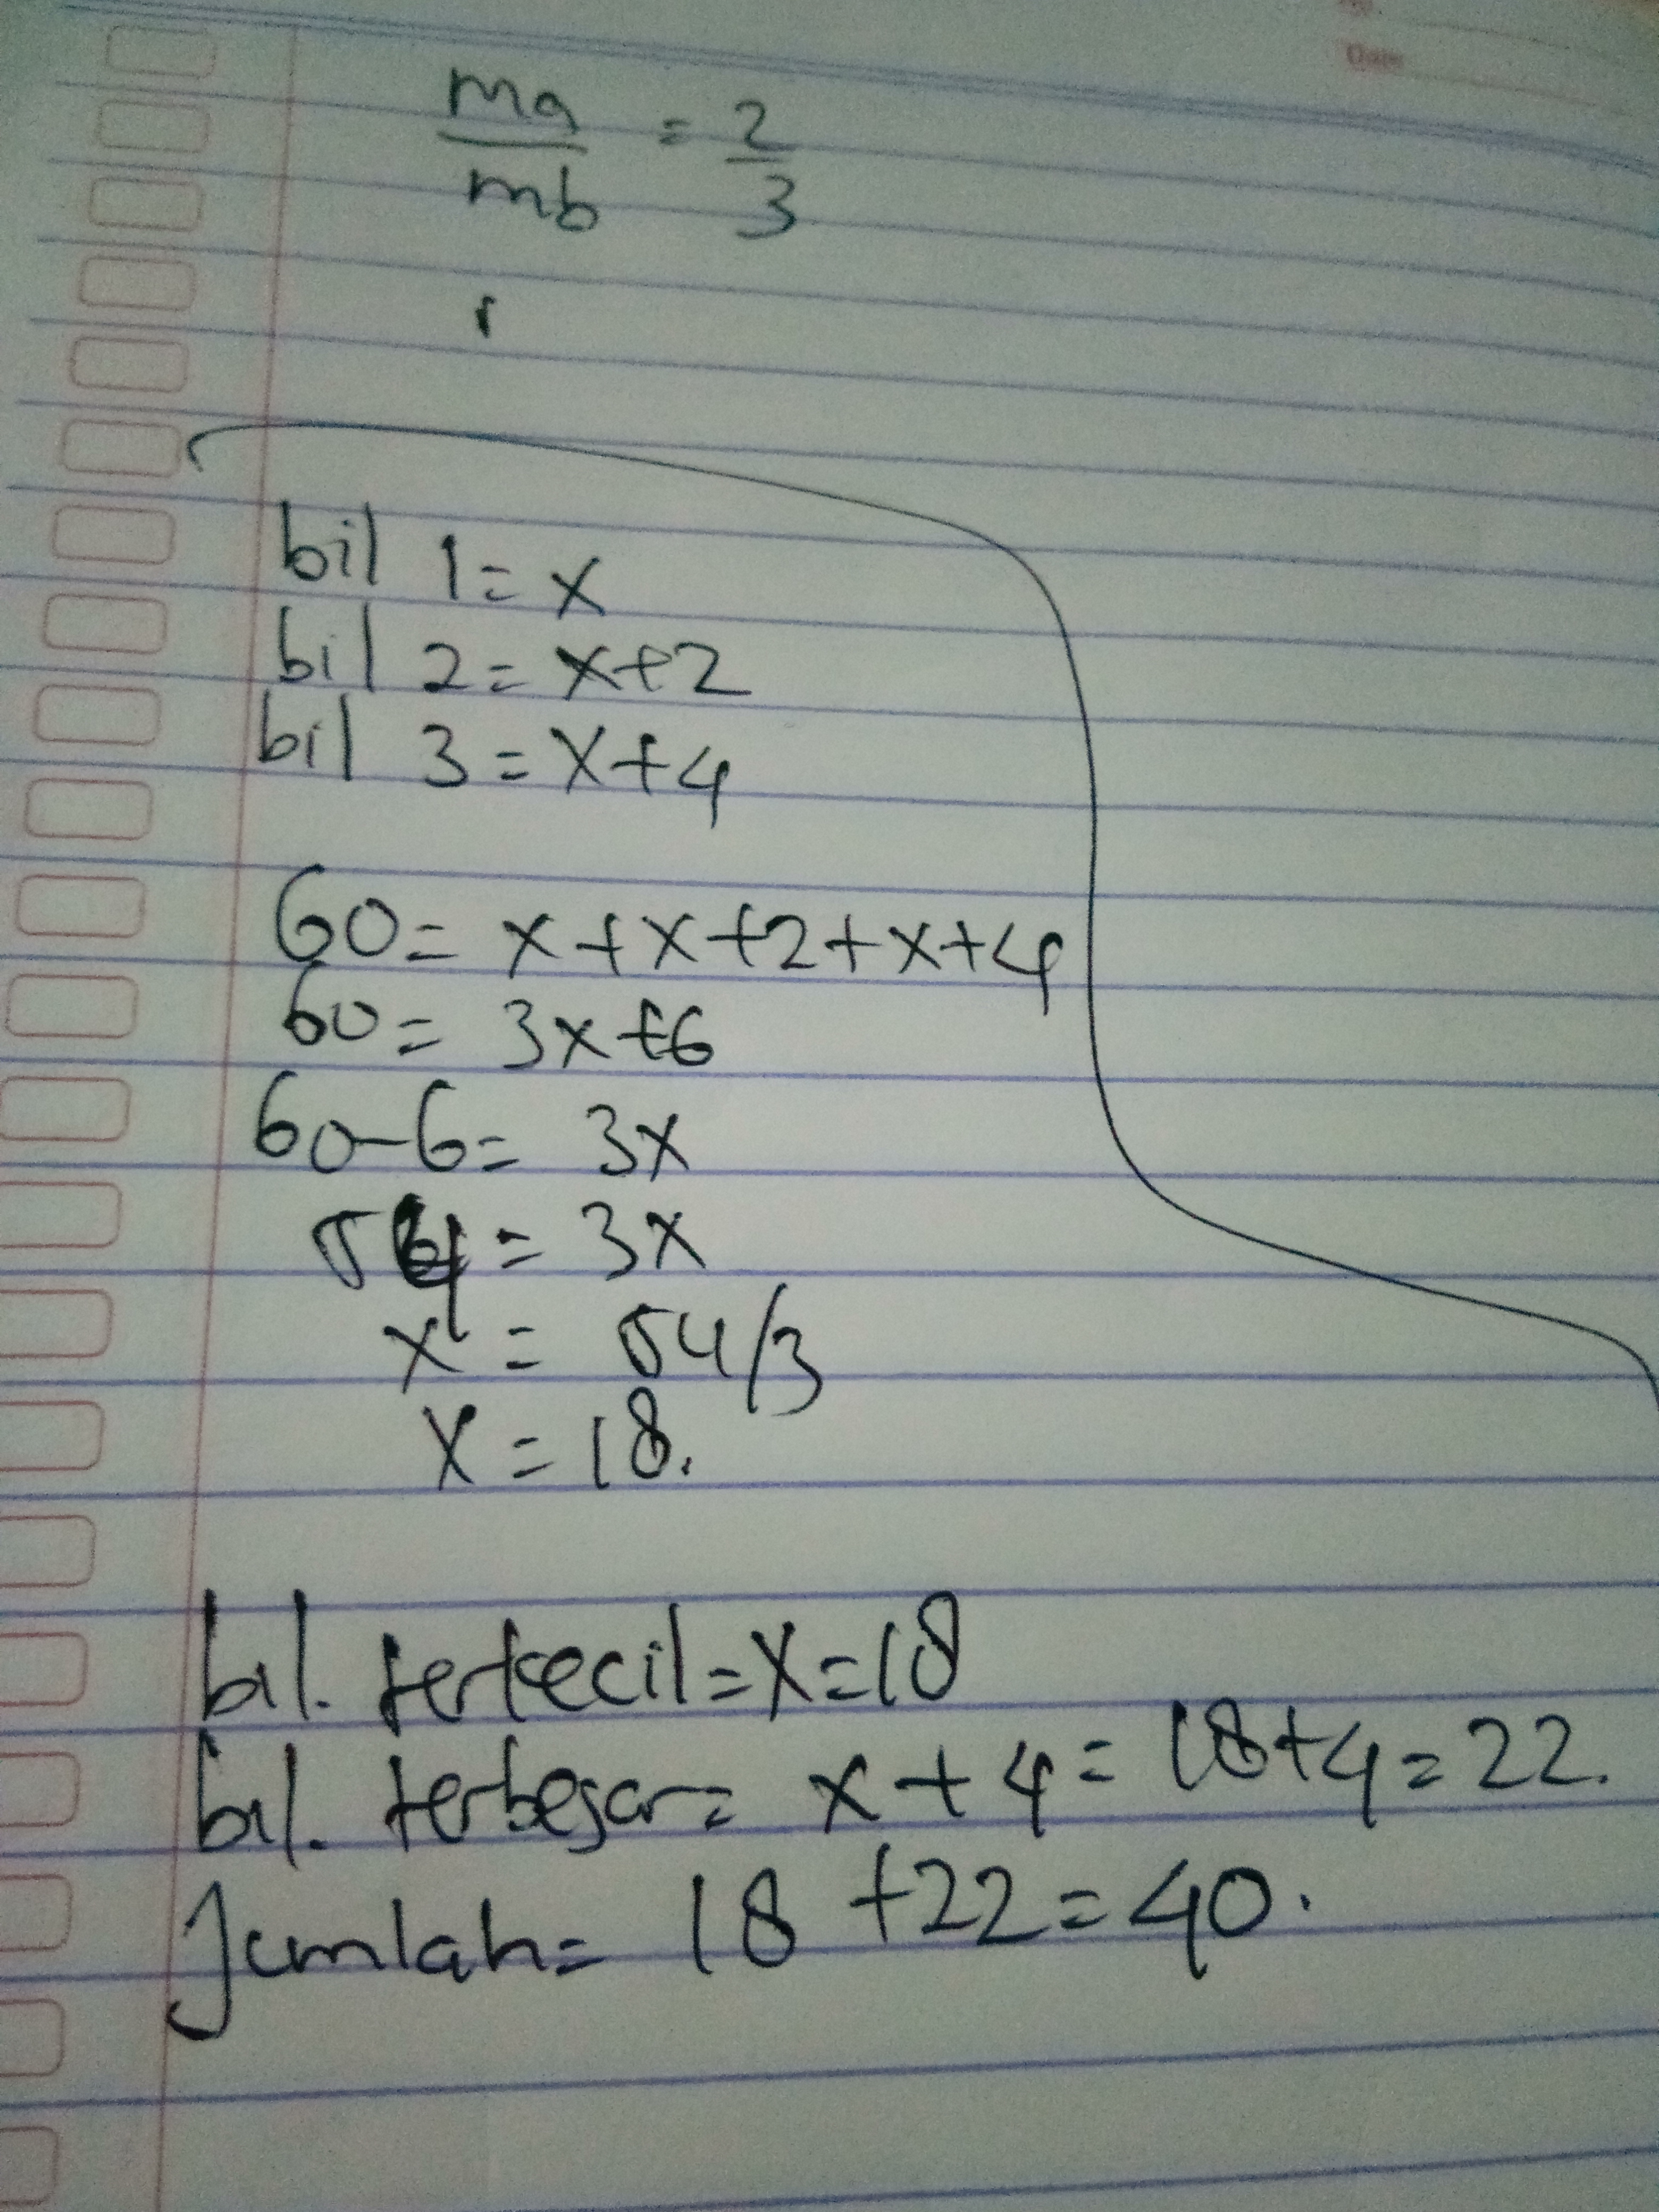 No.
Date
ma/mb = 2/3
bil 1 = x
bil 2 = x+2
bil 3 = x+4
60 = x+x+2+x+4
60 = 3x+6
60-6 = 3x
54 = 3x
x = 54/3
x = 18.
bil. terkecil = x = 18
bil. terbesar = x+4 = 18+4 = 22.
Jumlah = 18+22 = 40.